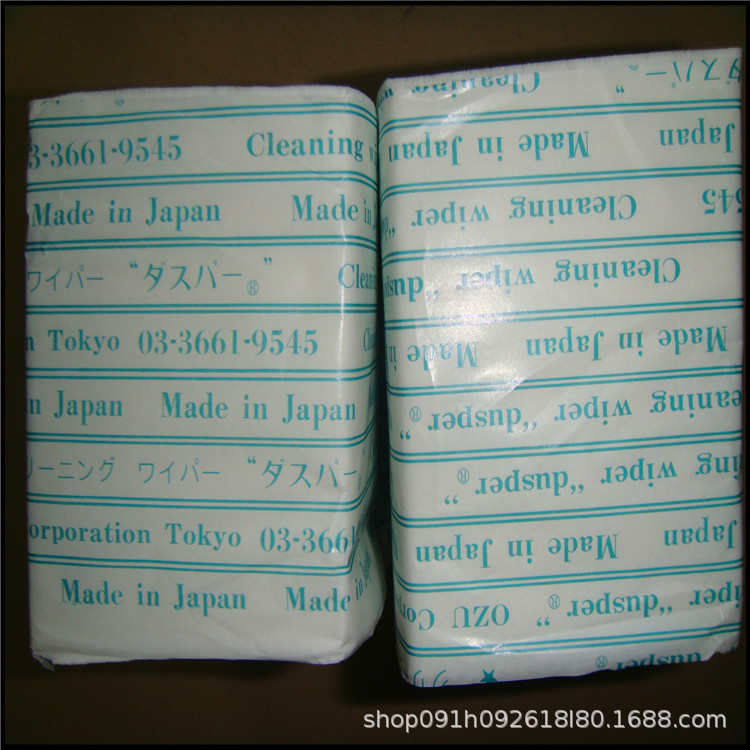 3-3661-9545 Cleaning
Made in Japan Made in
ワイパー “ダスパー®” Clean
n Tokyo 03-3661-9545
n Japan Made in Japan
リーニング ワイパー “ダスパー
orporation Tokyo 03-3661
Made in Japan Made in
Cleaning ” ダスパー®
Made in Japan Japan
Cleaning wiper “ 545
Cleaning wiper “dus
Made in Japan Made in
eaning wiper “dusper®”
ng wiper “dusper®”
Made in Japan Japan
iper “dusper®” OZU Corp
dusper® ★ クリ
shop091h092618l80.1688.com